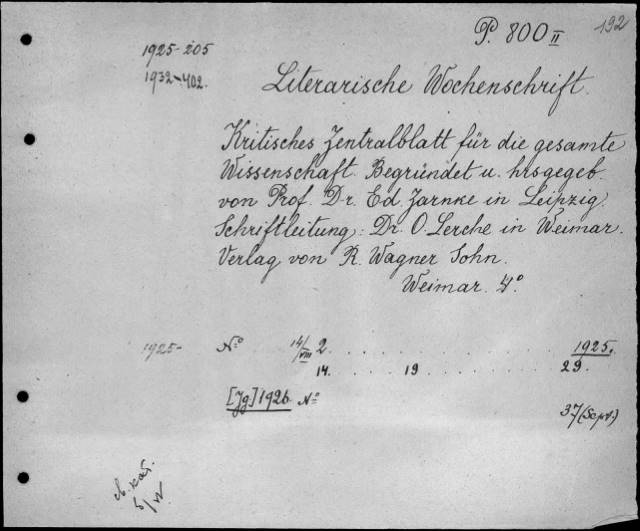 P. 800 II 192
1925-205
1932-402.
Literarische Wochenschrift.
Kritisches Zentralblatt für die gesamte
Wissenschaft. Begründet u. hrsgegeb.
von Prof. Dr. Ed. Zarnke in Leipzig.
Schriftleitung: Dr. O. Lerche in Weimar.
Verlag von R. Wagner Sohn.
Weimar. 4°.
1925- No 14/VIII 2 . . . . . . . . . . . . 1925.
14. . . . . 19 . . . . . . . . . 29.
[Jg] 1926 No 37 (Sept.)